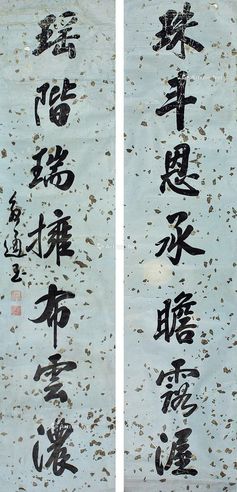 珠斗恩承瞻露渥
瑶階瑞擁布雲濃